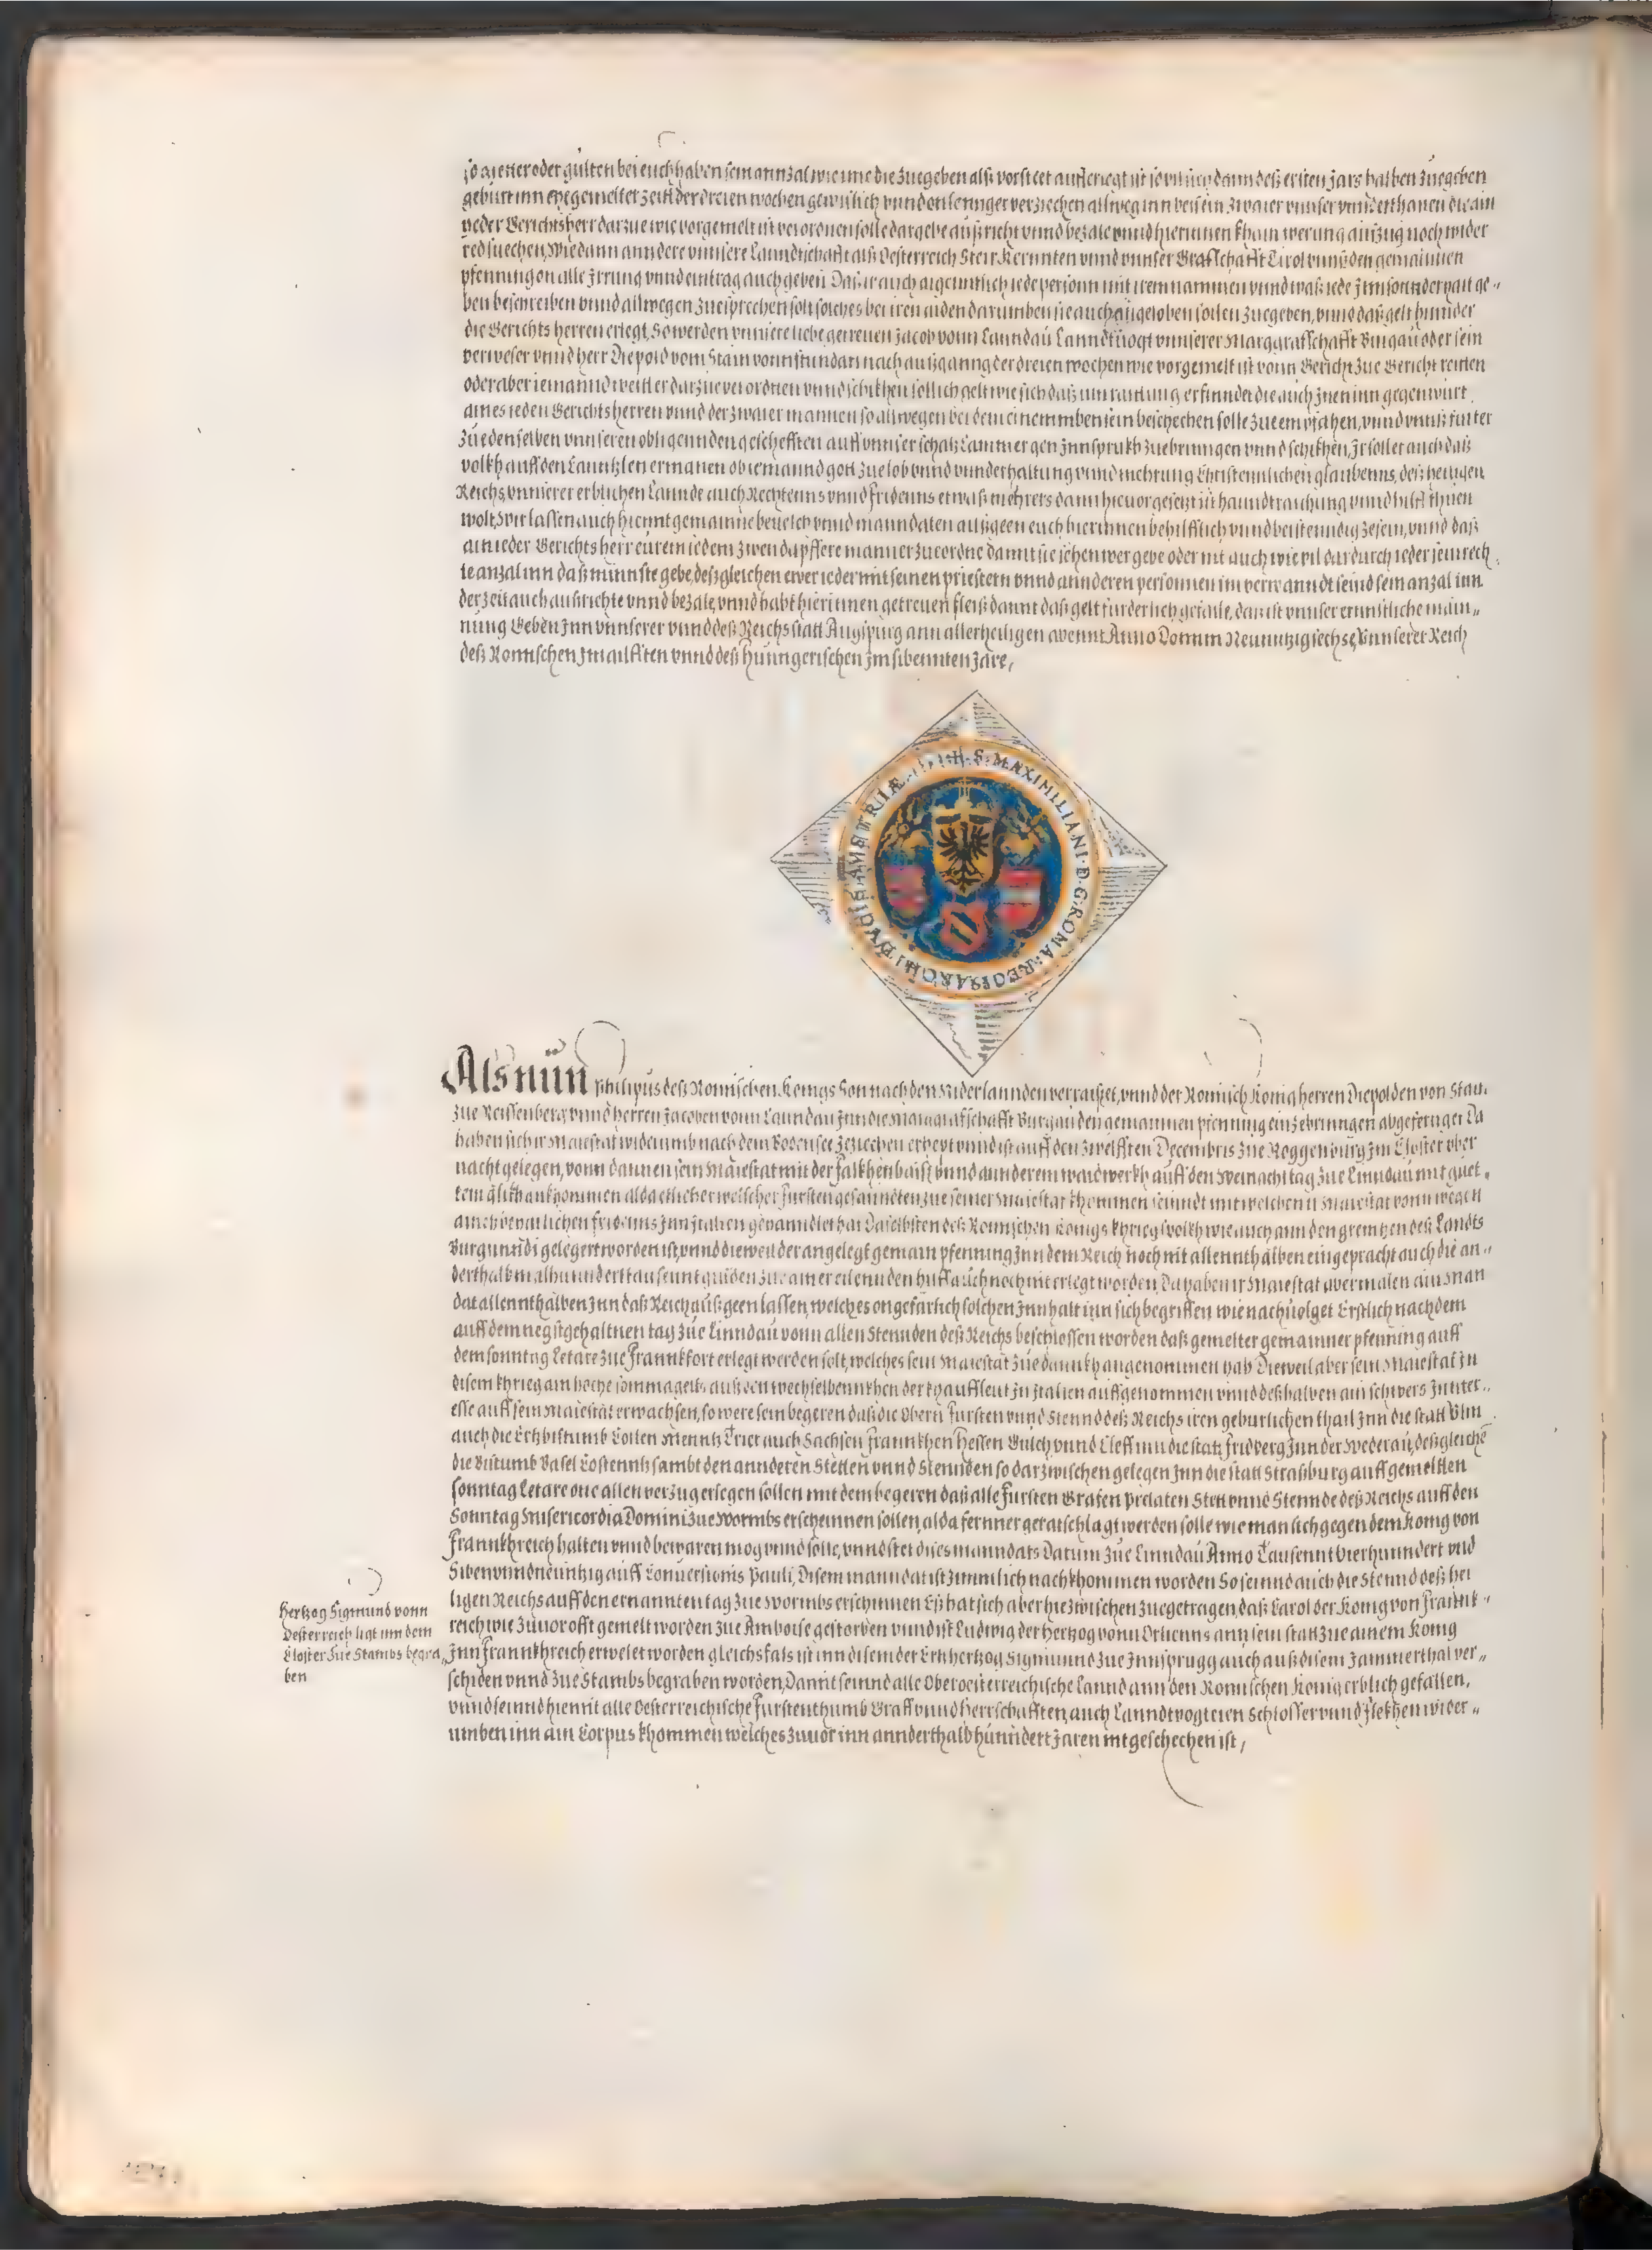 so zietter oder gülten bei euch haben sein annzal wie ime die zuegeben alß vorsteet aufferlegt ist so vil sich dann deß ersten Jars halben zuegeben
gebürt inn ehegemelter zeitt der dreien wochen gewißlich vnnd on lennger verziechen allweg inn beisein zwaier vnnser vnnderthanen die ain
yeder Gerichtsherr darzue wie vorgemelt ist verordnen solle dargebe außricht vnnd bezale vnnd hierinnen khain werung außzug noch wider
red suechen, Wie dann anndere vnnsere Lanndtschafft alß Oesterreich Steir Kernnten vnnd vnnser Graffschafft Tirol vnnß den gemainnen
pfenning on alle Irrung vnnd eintrag auch geben Daß ir auch aigenntlich iede person mit irem nammen vnnd waß iede Inn sonnderhait ge„
ben beschreiben vnnd allwegen zuesprechen solt solches bei iren aiden darumben sie auch angeloben sollen zuegeben, vnnd daß gelt hinnder
die Gerichts herren erlegt, So werden vnnsere liebe getreuen Jacob vonn Lanndau Lanndtuogt vnnserer Marggraffschafft Burgau oder sein
verweser vnnd herr Diepold vom Stain vonn stundan nach außganng der dreien wochen wie vorgemelt ist vonn Gericht zue Gericht reitten
oder aber iemannd weitter darzue verordnen vnnd schikhen sollich gelt wie sich daß inn raittung erfinndet die auch Inen inn gegenwürt
aines ieden Gerichtsherren vnnd der zwaier mannen so allwegen bei dem einemmben sein beschechen solle zue empfahen, vnnd vnnß fürter
zue denselben vnnseren obligennden geschefften auff vnnser schaz Cammer gen Innsprukh zuebrungen vnnd schikhen, Ir sollet auch daß
volkh auff den Canntzlen ermanen ob iemannd gott zue lob vnnd vnnderhaltung vnnd mehrung Christennlichen glaubenns, deß heiligen
Reichs, vnnserer erblichen Lannde auch Rechtenns vnnd fridenns etwaß mehrers dann hieuor gesetzt ist hanndtraichung vnnd hilff thuen
wolt, Wir lassen auch hiemit gemainne beuelch vnnd manndaten außgeen euch hierinnen behilfflich vnnd beistenndig zesein, vnnd daß
ain ieder Gerichtsherr eürem iedem zwen dapffere manner zueordne damit sie sehen wer gebe oder nit auch wie vil dardurch ieder sein rech„
te anzal inn daß minnste gebe, deßgleichen ewer ieder mit seinen priestern vnnd annderen personnen im verwanndt seind sein anzal inn
der zeit auch außrichte vnnd bezale, vnnd habt hierinnen getreuen fleiß damit daß gelt fürderlich gefalle, das ist vnnser ernnstliche main„
nung Geben Inn vnnserer vnnd deß Reichs statt Augspurg ann allerheiligen abennt Anno Domini Neunntzig sechse, Vnnserer Reich
deß Romischen Im ailfften vnnd deß Hunngerischen Im sibennten Jare,
S. MAXIMILIANI. D. G. ROMA: REGIS: ARCHI: DVCIS: AVSTRIÆ
Als nün Philipus deß Romischen Königs Son nach den Niderlannden verraiset, vnnd der Romisch König herren Diepolden von Stain
zue Reissenberg vnnd herren Jacoben vonn Lanndau Inn die Marggrafschafft Burgau den gemainnen pfenning einzebringen abgefertiget Da
haben sich ir Maiestat widerumb nach dem Bodensee zeziechen erhept vnnd ist auff den zwelfften Decembris zue Roggenburg Im Closter vber
nacht gelegen, vonn dannen sein Maiestat mit der falkhenbaiß vnnd annderem waidwerkh auff den Weinacht tag zue Linndau mit guet„
tem glükh ankhommen alda etlicher welscher fürsten gesanndten zue seiner Maiestat khommen seinndt mit welchen ir Maiestat vonn wegen
aines bestenndlichen fridenns Inn Italien gehanndlet hat Daselbsten deß Romischen Königs khriegßvolkh wie auch ann den grentzen deß Landts
Burgunndi gelegert worden ist, vnnd dieweil der angelegt gemain pfenning Inn dem Reich noch nit allennthalben eingepracht auch die an„
derthalb malhunndert tausennt gulden zue ainer eilennden hilff auch noch nit erlegt worden, Da haben ir Maiestat abermalen ain Man
dat allennthalben Inn daß Reich außgeen lassen, welches ongefärlich solchen Innhalt inn sich begriffen wie nachuolget Erstlich nach dem
auff dem negst gehaltnen tag zue Linndau vonn allen Stennden deß Reichs beschlossen worden daß gemelter gemainner pfenning auff
dem sonntag Letare zue Frannkfort erlegt werden solt, welches sein Maiestat zue dannkh angenommen hab Dieweil aber sein Maiestat In
disem khrieg ain hoche somma gelts auß den wechselbennkhen der khauffleut In Italien auffgenommen vnnd deßhalben ain schwers Innter„
esse auff sein Maiestat erwachsen, so were sein begeren daß die Obern Fürsten vnnd Stennd deß Reichs iren gebürlichen thail Inn die statt Vlm
auch die Ertzbistumb Cöllen Menntz Trier auch Sachsen Frannkhen Hessen Gulch vnnd Cleff inn die statt Fridberg Inn der Wederau, deßgleichen
die Bistumb Basel Costenntz sambt den annderen Stetten vnnd Stennden so darzwischen gelegen Inn die statt Straßburg auff gemelten
sonntag Letare one allen verzug erlegen sollen mit dem begeren daß alle Fürsten Grafen Prelaten Stett vnnd Stennde deß Reichs auff den
Sonntag Misericordia Domini zue Wormbs erscheinnen sollen, alda fernner geratschlagt werden solle wie man sich gegen dem König von
Frannkhreich halten vnnd bewaren mög vnnd solle, vnnd stet dises manndats Datum zue Linndau Anno Tausennt Vierhunndert vnd
Siben vnnd neüntzig auff Conuersionis Pauli, Disem manndat ist zimmlich nachkhommen worden So seinnd auch die Stennd deß hei
ligen Reichs auff den ernannten tag zue Wormbs erschinnen Eß hat sich aber hiezwischen zuegetragen, daß Carol der König von Frannk„
reich wie zuuor offt gemelt worden zue Amboise gestorben vnnd ist Ludwig der Hertzog vonn Orlienns ann sein statt zue ainem König
Inn Frannkhreich erwelet worden gleichsfals ist inn disem der Ertzhertzog Sigmund zue Innsprugg auch auß disem Jammerthal ver„
schiden vnnd zue Stambs begraben worden, Damit seinnd alle Oberoesterreichische lannd ann den Romischen König erblich gefallen,
vnnd seinnd hiemit alle Oesterreichische Fürstenthumb Graff vnnd Herrschafften, auch Lanndtvogteien Schlosser vnnd flekhen wider„
umben inn ain Corpus khommen welches zuuor inn annderthalb hunndert Jaren nit geschechen ist,
Hertzog Sigmund vonn
Oesterreich ligt inn dem
Closter zue Stambs begra„
ben